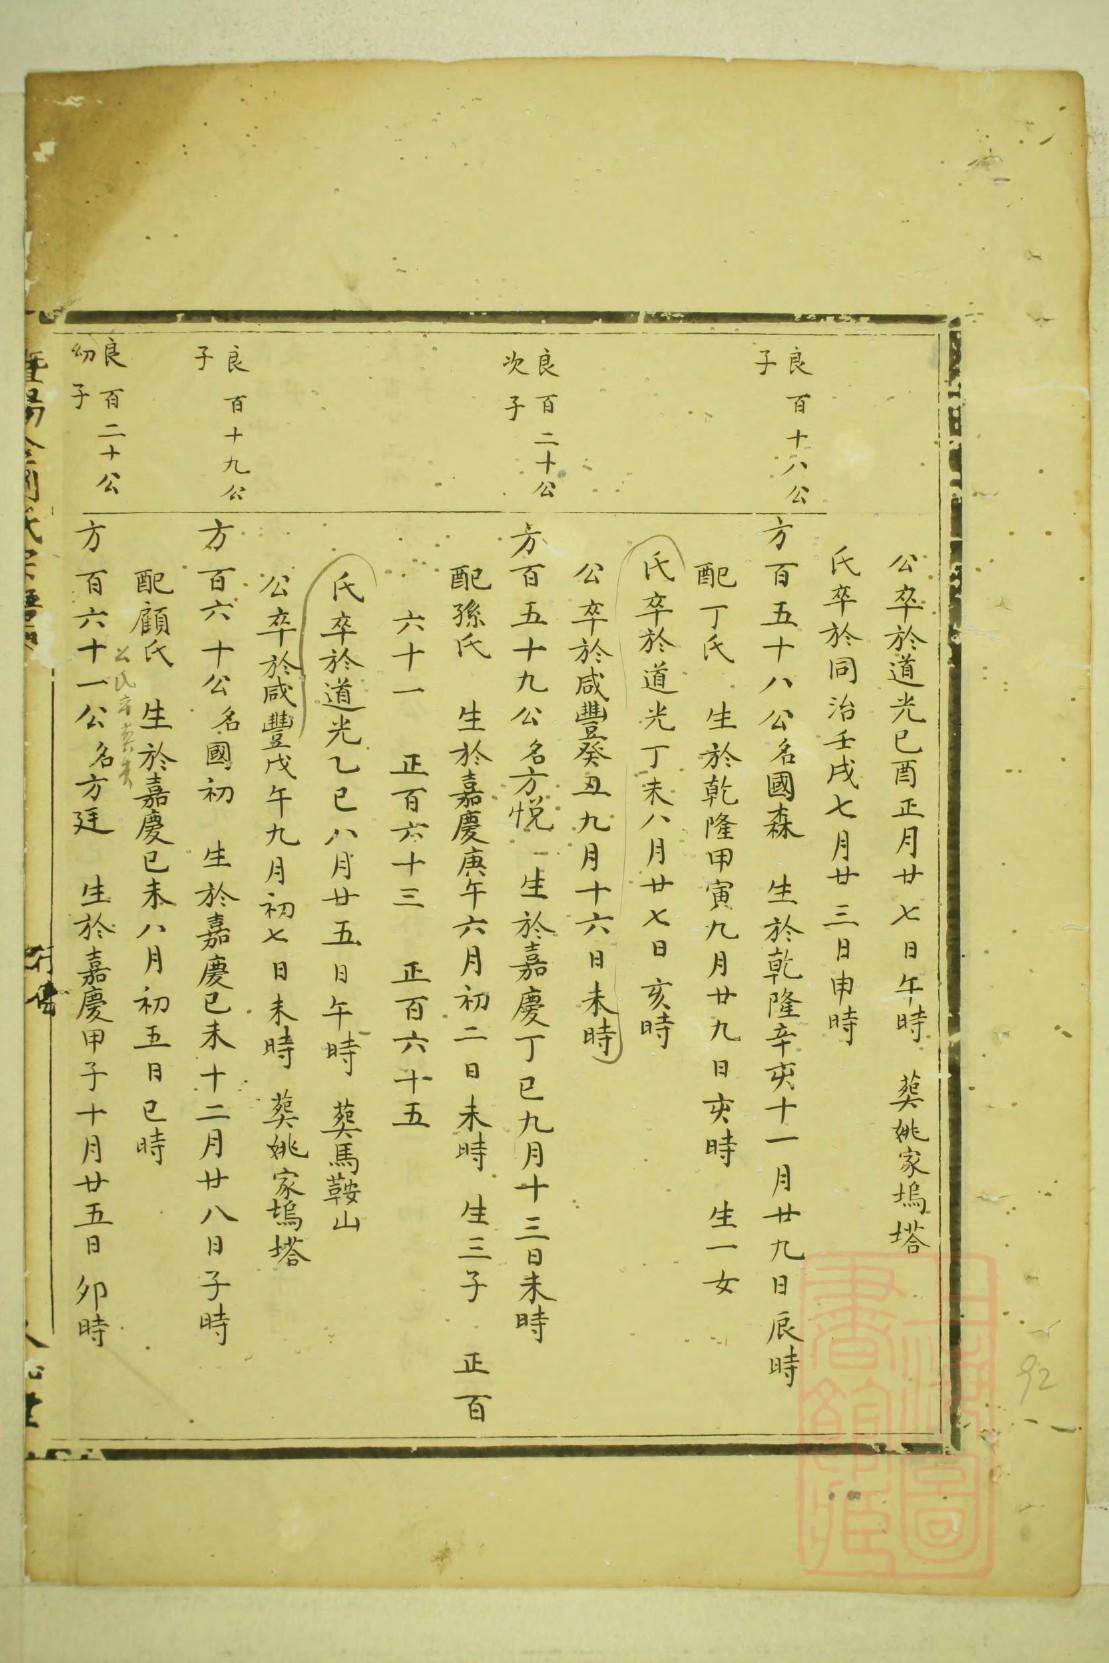 公卒於道光己酉正月廿七日午時 葬姚家塢塔
氏卒於同治壬戌七月廿三日申時
良百十八公
子
方百五十八公名國森 生於乾隆辛亥十一月廿九日辰時
配丁氏 生於乾隆甲寅九月廿九日亥時 生一女
氏卒於道光丁未八月廿七日亥時
公卒於咸豐癸丑九月十六日未時
良百二十公
次子
方百五十九公名方悅 生於嘉慶丁巳九月十三日未時
配孫氏 生於嘉慶庚午六月初二日未時 生三子 正百
六十一 正百六十三 正百六十五
氏卒於道光乙巳八月廿五日午時 葬馬鞍山
公卒於咸豐戊午九月初七日未時 葬姚家塢塔
良百十九公
子
方百六十公名國初 生於嘉慶己未十二月廿八日子時
配顧氏 生於嘉慶己未八月初五日巳時
公氏卒葬失
良百二十公
幼子
方百六十一公名方廷 生於嘉慶甲子十月廿五日卯時
行傳
上海圖
書館藏
92